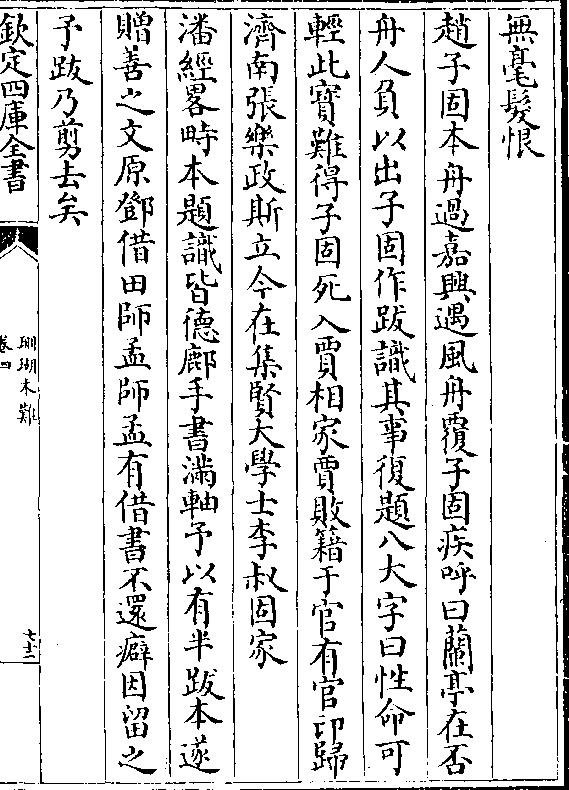 無毫髮恨
趙子固本舟過嘉興遇風舟覆子固疾呼曰蘭亭在否
舟人負以出子固作跋識其事復題八大字曰性命可
輕此寶難得子固死入賈相家賈敗籍于官有官印歸
濟南張樂政斯立今在集賢大學士李叔固家
潘經畧畤本題識皆德鄜手書滿軸予以有半跋本遂
贈善之文原鄧借田師孟師孟有借書不還癖因留之
予跋乃剪去矣
欽定四庫全書
珊瑚木難
卷四